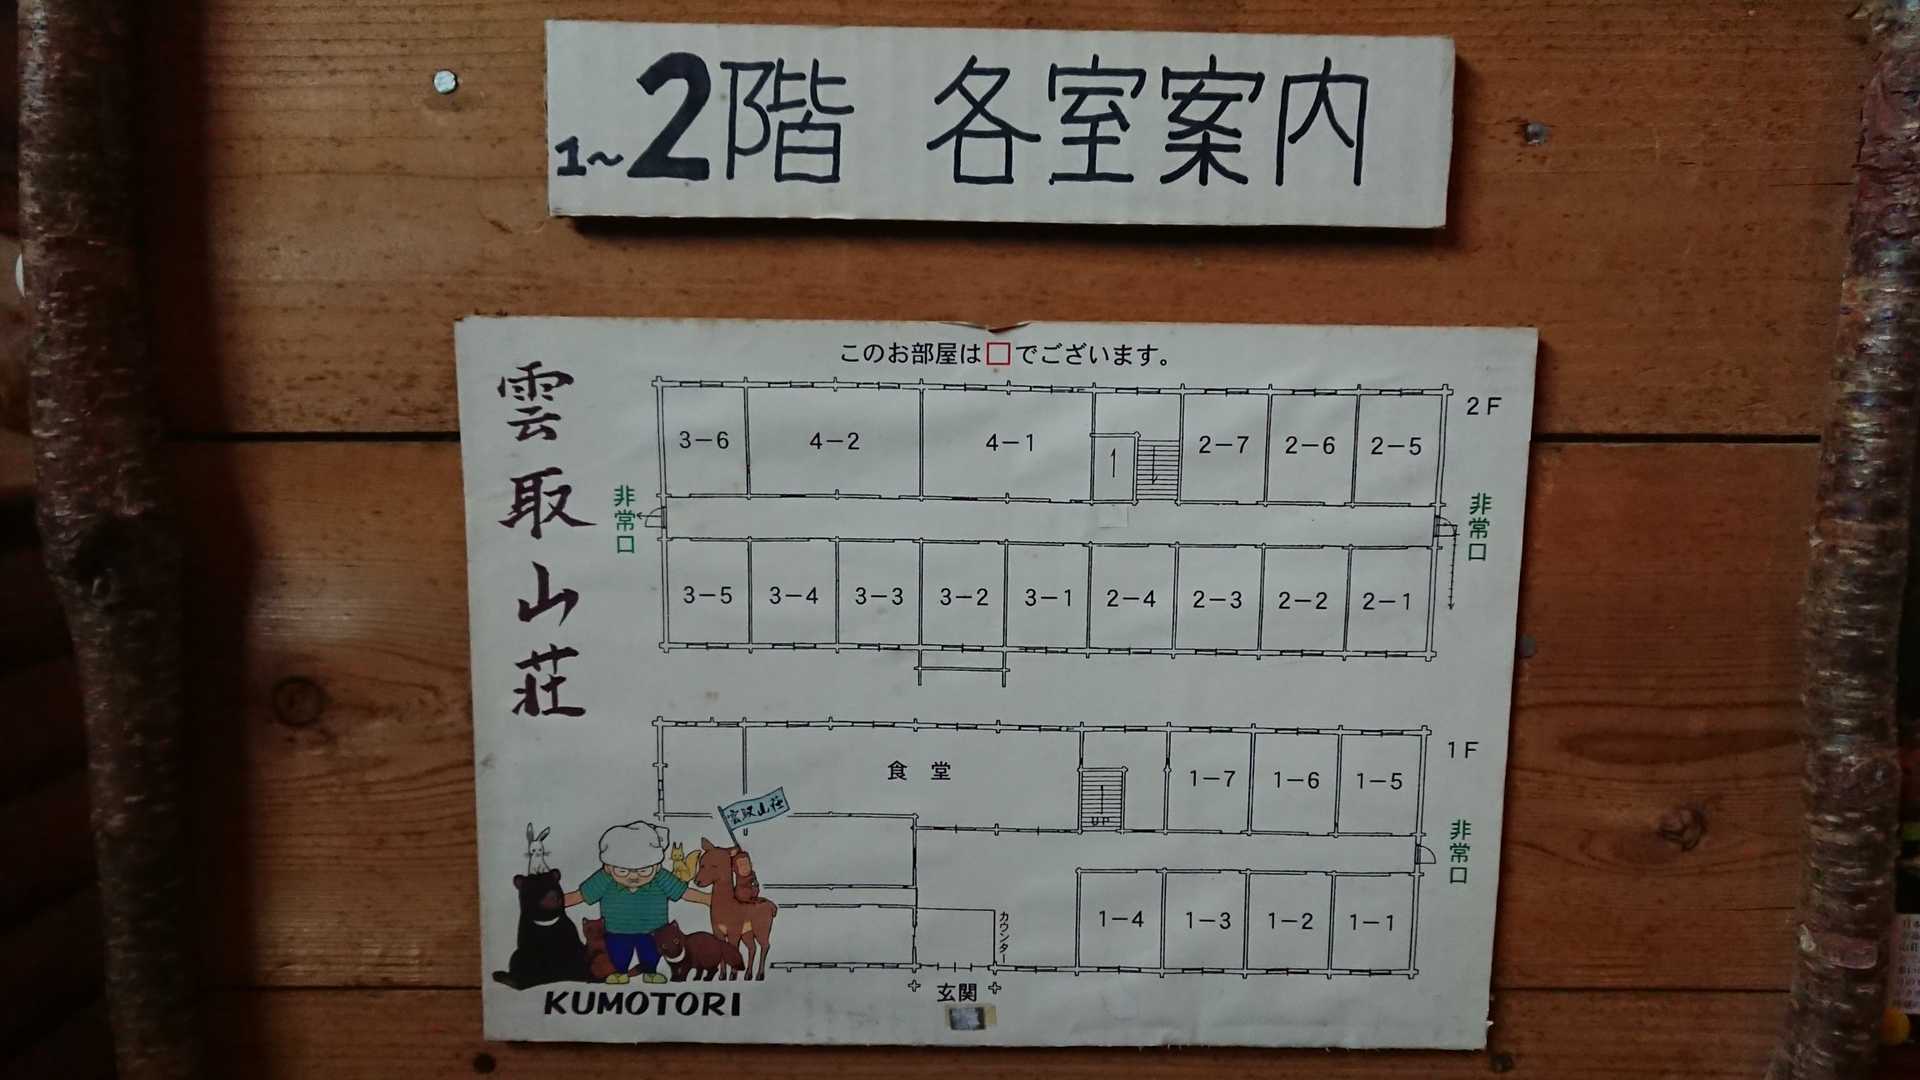 1~2階 各室案内
このお部屋は□でございます。
雲取山荘
2F
3-6 4-2 4-1 2-7 2-6 2-5
非常口
非常口
3-5 3-4 3-3 3-2 3-1 2-4 2-3 2-2 2-1
1F
食堂
1-7 1-6 1-5
UP
雲取山荘
非常口
カウンター
1-4 1-3 1-2 1-1
玄関
KUMOTORI